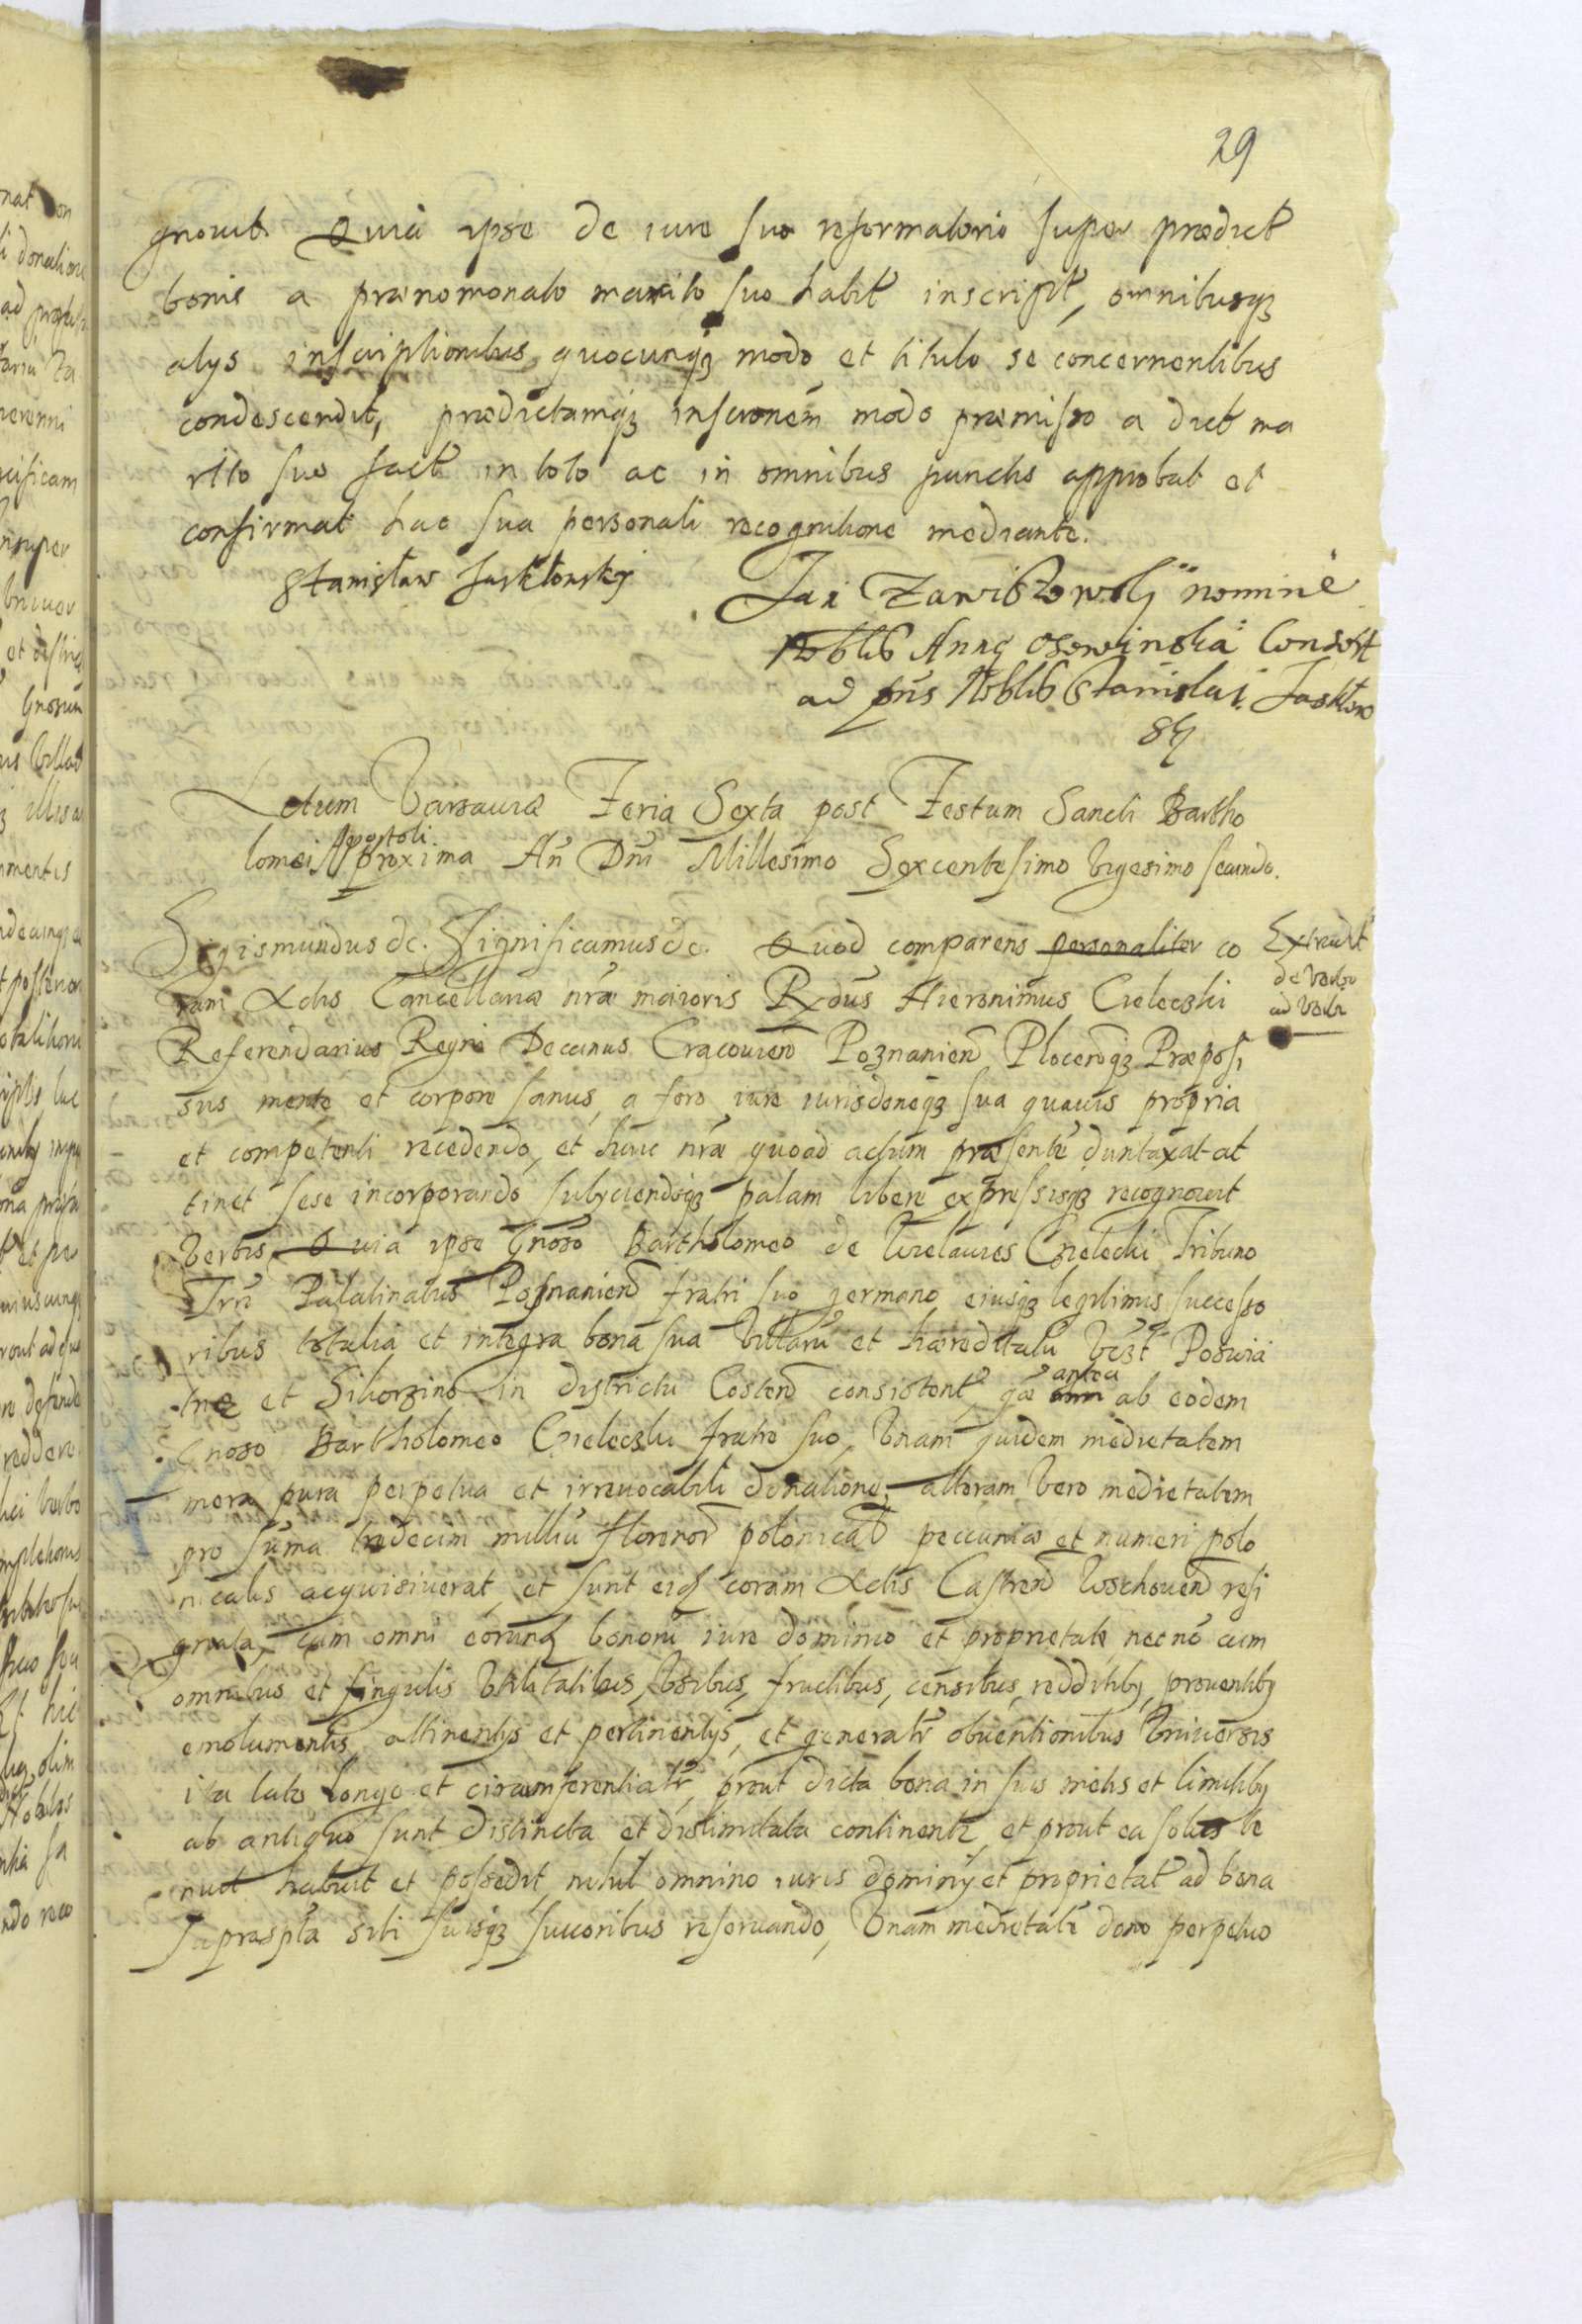 29
gnouit. Quia ipse de iure suo reformatorio super prædict
bonis a prænomonato marito suo habit inscript, omnibusqz
alijs inscriptionibus quocunqz modo et titulo se concernentibus
condescendit, prædictamqz inscronem modo præmisso a dict ma
rito suo fact in toto ac in omnibus punctis approbat et
confirmat hac sua personali recognitione mediante.
Stanisław Jasktowskÿ
Jai Zawiszowsky nomine
Noblis Annę Consort
ad pns Noblis Stanislai Jasktow
sky
Actum Varsauiæ Feria Sexta post Festum Sancti Bartho
lomei Apostoli proxima An Dni Millesimo Sexcentesimo Vigesimo secundo.
Sigismundus &c. Significamus &c. Quod comparens personaliter co
ram Actis Cancellariæ nræ maioris Rxdus Hieronimus Cieleczki
Referendarius Regni Decanus Cracouien Poznanien Plocenqz Præposi
sus mente et corpore sanus, a foro iure iurisdoneqz sua quauis propria
et competenti recedendo, et huic nræ quoad actum præsente duntaxat at
tinet sese incorporando subyciendoqz palam libere expressisqz recognouit
verbis, Quia ipse Gnoso Bartholomeo de Cieleczki Tribuno
Trri Palatinatus Posnanien fratri suo germano eiusqz legitimis successo
ribus totalia et integra bona sua Villaru et hæreditatu vczt Poswia
tne et Sikorzino in districtu Costen consistent, quæ antea ab eodem
Gnoso Bartholomeo Czieleczki fratre suo, Vnam quidem medietatem
mera pura perpetua et irreuocabili donatione, alteram Vero medietatem
pro suma tredecim milliu florenor polonical peccuniæ et numeri polo
nicalis acquisiuerat, et sunt eid coram Actis Castren Wschouen resi
gnata, cum omni eorund bonoru iure dominio et proprietate, necno cum
omnibus et singulis Vtilitatibus, Vsibus, fructibus, censibus, redditiby, prouentiby
emolumentis attinentijs et pertinentijs, et generatr obuentionibus Vniuersis
ita late longe et circumferentiatr, prout dicta bona in suis metis et limitiby
ab antiquo sunt distincta et dislimitata continentr, et prout ea solus te
nuit habuit et possedit, nihil omnino iuris dominij et proprietat ad bona
supraspta sibi suisqz succoribus reseruando, Vnam medietate dono perpetuo
Extradit
de Verbo
ad Verb